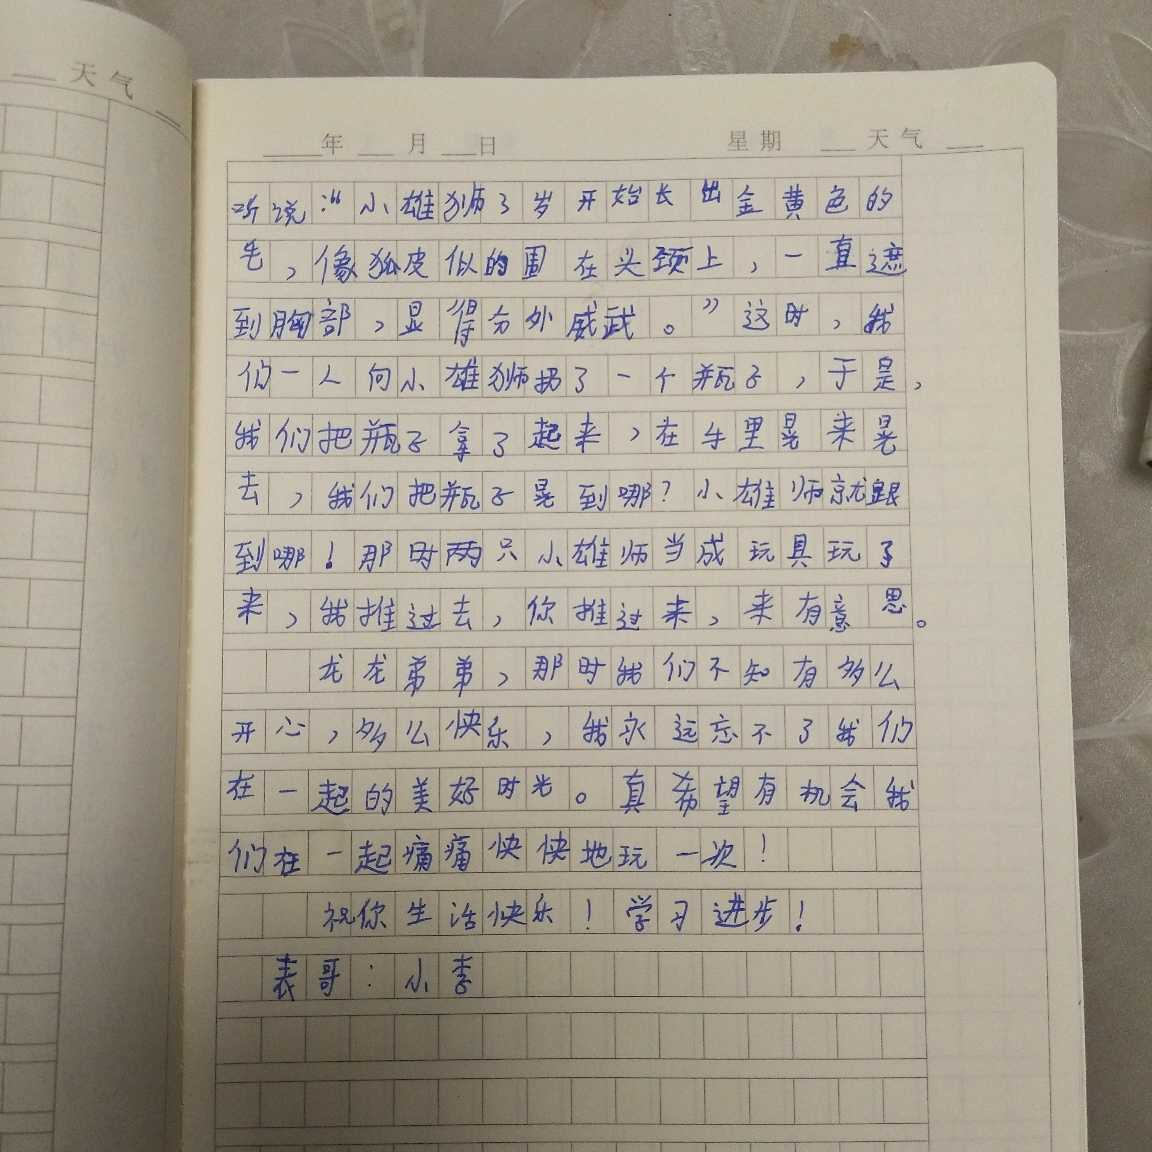 天气
年 月 日 星期 天气
听说:“小雄狮3岁开始长出金黄色的
毛，像狐皮似的围在头颈上，一直遮
到胸部，显得分外威武。”这时，我
们一人向小雄狮扔了一个瓶子，于是，
我们把瓶子拿了起来，在手里晃来晃
去，我们把瓶子晃到哪?小雄师就跟
到哪!那时两只小雄师当成玩具玩了
来，我推过去，你推过来，来有意思。
龙龙弟弟，那时我们不知有多么
开心，多么快乐，我永远忘不了我们
在一起的美好时光。真希望有机会我
们在一起痛痛快快地玩一次!
祝你生活快乐!学习进步!
表哥:小李